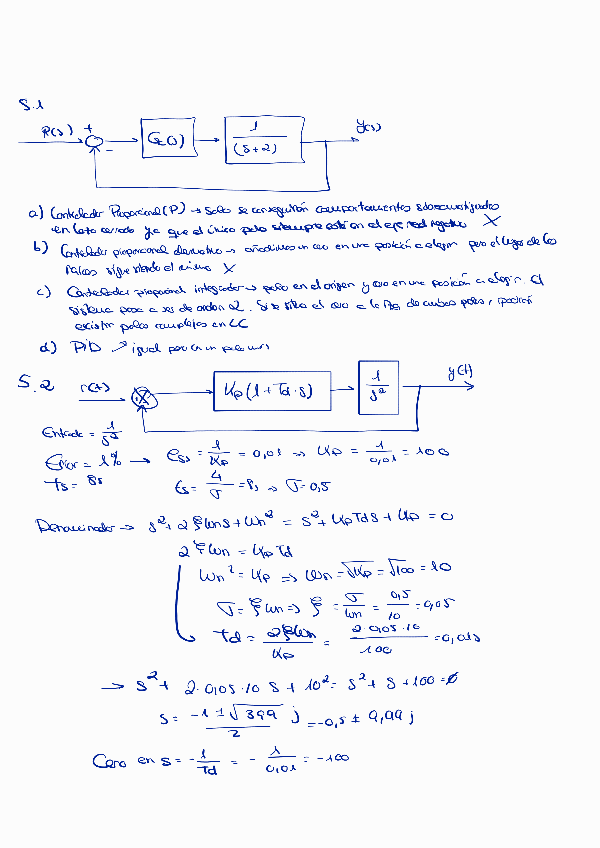 5.1
R(s) + - Gc(s) 1/(s+2) y(s)
a) Controlador Proporcional (P) → solo se conseguirán comportamientos sobreamortiguados
en lazo cerrado ya que el único polo siempre está en el eje real negativo X
b) Controlador proporcional derivativo → añadimos un cero en una posición a elegir pero el lugar de las
raíces sigue siendo el mismo X
c) Controlador proporcional integrador → polo en el origen y cero en una posición a elegir. El
sistema pasa a ser de orden 2. Si se sitúa el cero a la izq de ambos polos, podrán
existir polos complejos en LC
d) PID → igual pero con un
5.2 r(t) Kp(1+Td·s) 1/s² y(t)
Entrada = 1/s²
Error = 1% → ess = 1/Kp = 0,01 ⇒ Kp = 1/0,01 = 100
ts = 8s ts = 4/σ = 8s ⇒ σ = 0,5
Denominador → s² + 2ξwns + wn² = s² + KpTds + Kp = 0
2ξwn = KpTd
wn² = Kp ⇒ wn = √Kp = √100 = 10
σ = ξwn ⇒ ξ = σ/wn = 0,5/10 = 0,05
Td = 2ξwn/Kp = 2·0,05·10/100 = 0,01s
→ s² + 2·0,05·10 s + 10² = s² + s + 100 = 0
s = (-1 ± √399 j)/2 = -0,5 ± 9,99 j
Cero en s = -1/Td = -1/0,01 = -100